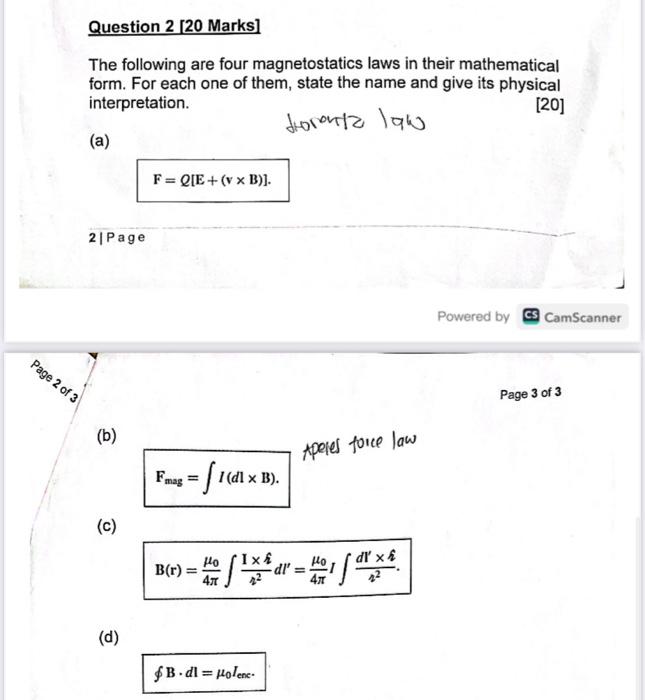 Question 2 [20 Marks]
The following are four magnetostatics laws in their mathematical
form. For each one of them, state the name and give its physical
interpretation. [20]
law
(a)
F = Q[E + (v × B)].
2 | Page
Powered by CS CamScanner
Page 2 of 3
Page 3 of 3
(b)
force law
F_mag = ∫ I (dl × B).
(c)
B(r) = μ₀/4π ∫ I × 𝓇̂/𝓇² dl′ = μ₀/4π I ∫ dl′ × 𝓇̂/𝓇².
(d)
∮ B · dl = μ₀I_enc.